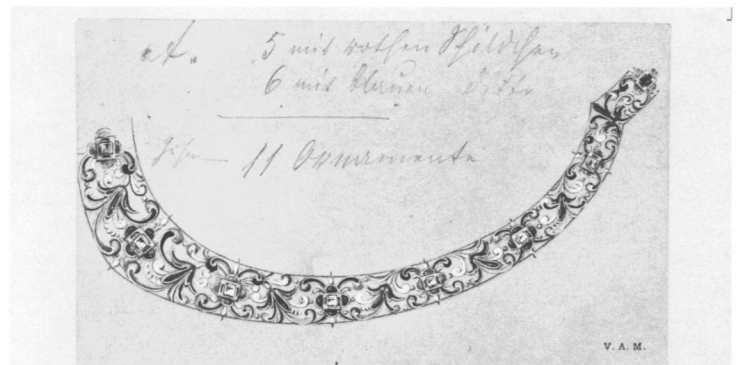 5 mit rothen Schildchen
6 mit blauen ditto
11 Ornamente
V. A. M.